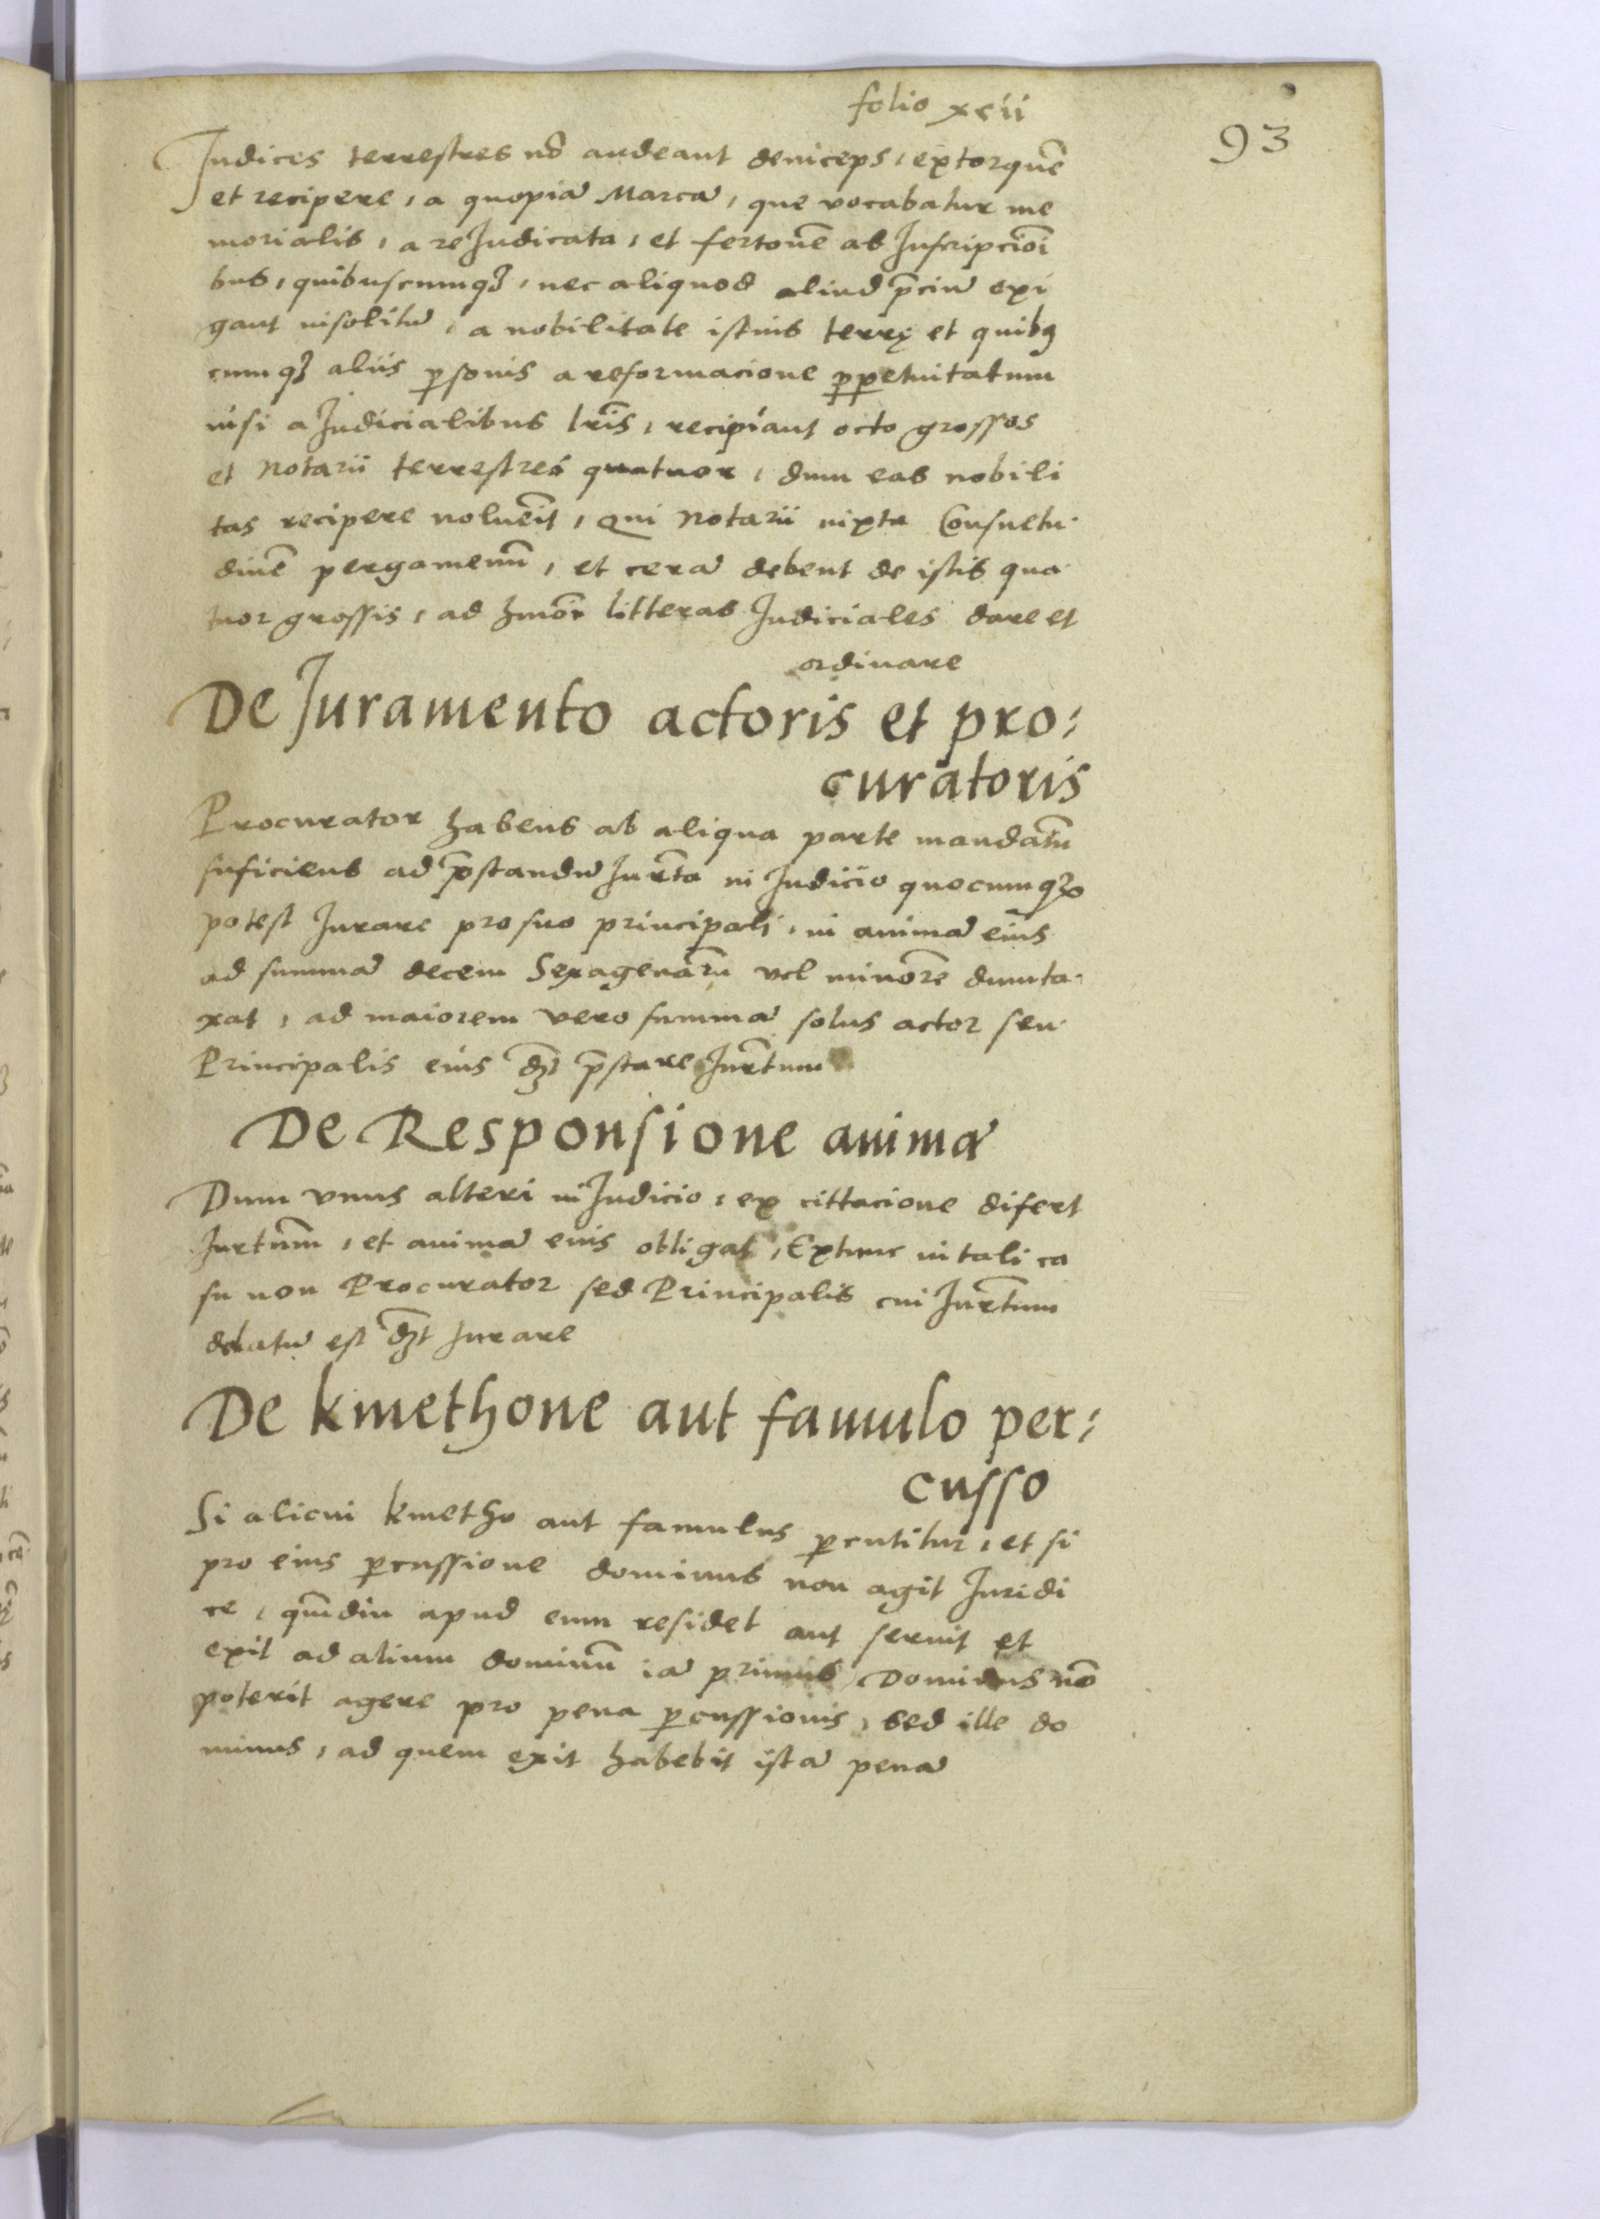 folio xcii
93
Iudices terrestres nō audeant deniceps, extorquē
et recipere, a quopiā Marcā, que vocabatur me
morialis, a re Iudicata, et fertonē ab Inscripcioī
bus, quibuscumqȝ, nec aliquod aliud p̄ciū exi
gant insolitū, a nobilitate istius terrę et quibꝯ
cumqȝ aliis ꝑsonis a reformacione ꝑpetuitatum
nisi a Iudicialibus lr̄is, recipiant octo grossos
et Notarii terrestres quatuor, dum eas nobili
tas recipere voluēit, Qui Notarii iuxta Consuetu-
dinē pergamenū, et cerā debent de istis qua
tuor grossis, ad hmōi litteras Iudiciales dare et
ordinare
De Iuramento actoris et pro:
curatoris
Procurator habens ab aliqua parte mandatū
suficiens ad p̄standū Iurt̄a in Iudicio quocumqȝ
potest Iurare pro suo principali, in animā eius
ad summā decem Sexagenarū vel minorē dumta-
xat, ad maiorem vero summā solus actor seu
Principalis eius dȝt p̄stare Iurt̄um
De Responsione animā
Dum vnus alteri in Iudicio, ex cittacione difert
Iurtnm̄, et animā eius obligat, Extunc in tali ca
su non Procurator sed Principalis cui Iurt̄um
delatū est dȝt Iurare
De kmethone aut famulo per:
cusso
Si alicui kmetho aut famulus ꝑcutitur, et si
pro eius ꝑcussione dominus non agit Iuridi
ce, qm̄diu apud eum residet aut seruit et
exit ad alium dominū iā primus Dominus nō
poterit agere pro pena ꝑcussionis, sed ille do
minus, ad quem exit habebit istā penā